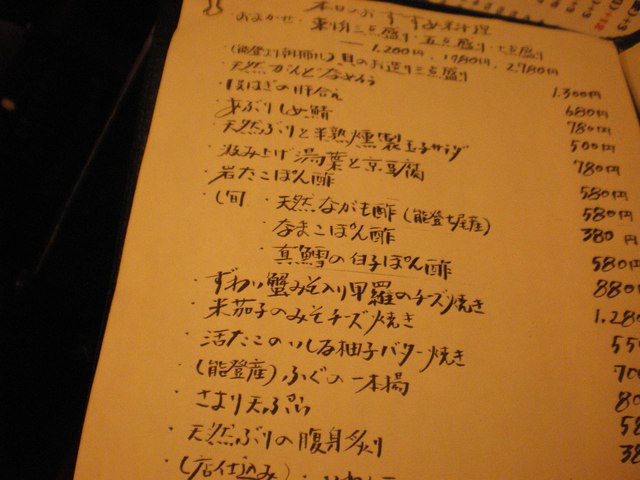 本日のおすすめ料理
おまかせ・刺身三点盛り・五点盛り・七点盛り
1.200円, 1.780円, 2.780円
(能登より朝網れ) 貝のお造り三点盛り
天然がんどなめろう 1.300円
680円
あぶりしめ鯖 780円
天然ぶりと半熟燻製玉子サラダ 500円
汲み上げ湯葉と京豆腐 780円
岩たこぽん酢 580円
(旬) ・天然ながも酢 (能登七尾産) 580円
・なまこぽん酢 380円
・真鱈の白子ぽん酢 580円
・ずわい蟹みそ入り甲羅のチーズ焼き 880
・米茄子のみそチーズ焼き 1.280
・活たこのいしる柚子バター焼き 55
・(能登産) ふぐの一本揚 700
・さより天ぷら 80
・天然ぶりの腹身炙り 58
・(店仕込み) 38